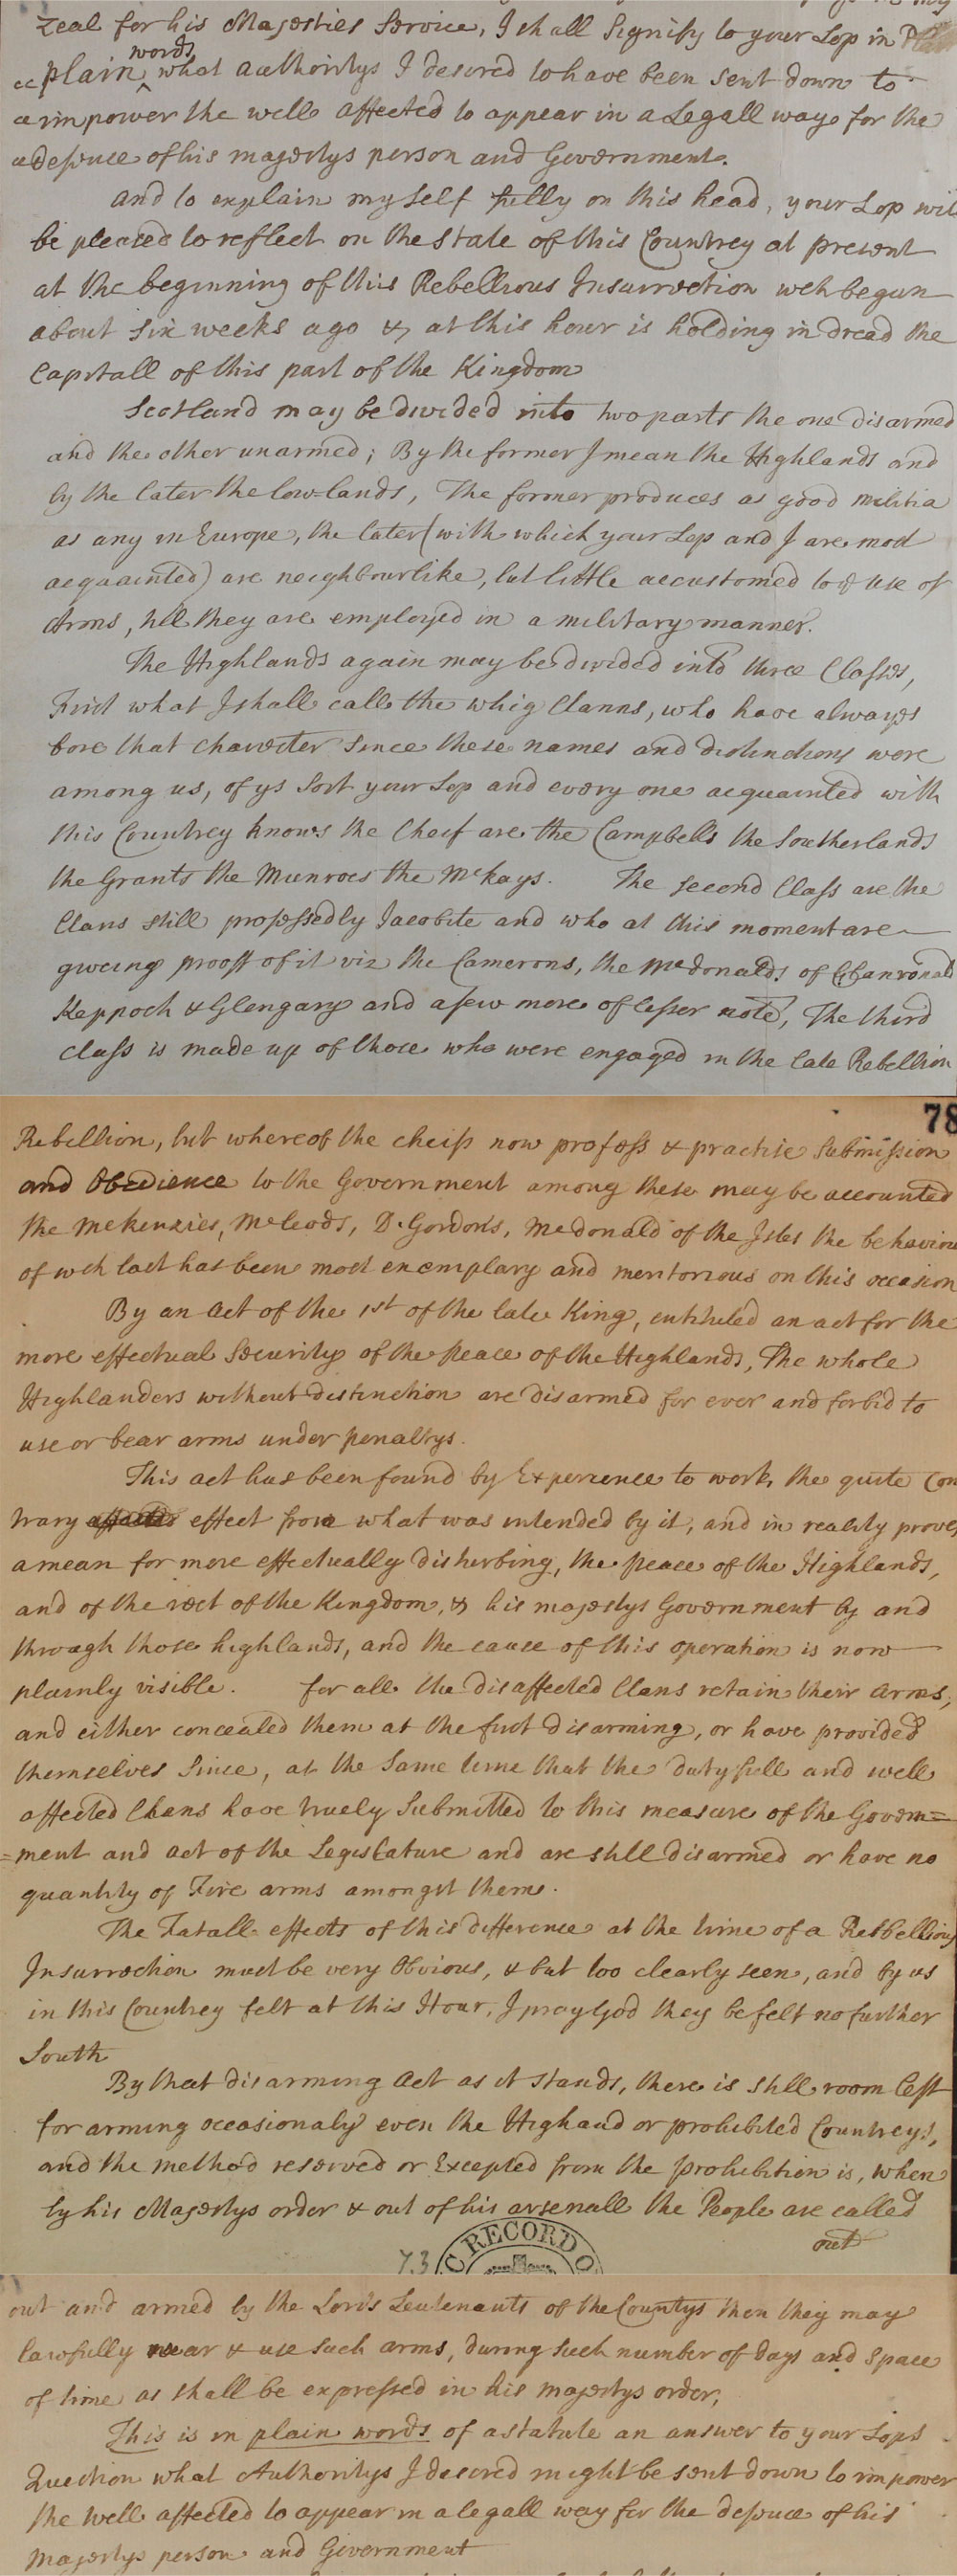 zeal for his Majesties Service, I shall Signify to your Lop in
plain words what authoritys I desired to have been sent down to
impower the well affected to appear in a Legall way for the
defence of his majestys person and Government.
And to explain my self fully on this head, your Lop will
be pleased to reflect on the State of this Countrey at present
at the beginning of this Rebellious Insurrection wch begun
about six weeks ago & at this hour is holding in dread the
Capitall of this part of the Kingdom
Scotland may be divided into two parts the one disarmed
and the other unarmed; By the former I mean the Highlands and
by the later the low-lands, The former produces as good militia
as any in Europe, the later (with which your Lop and I are most
acquainted) are neighbourlike, but little accustomed to ye use of
Arms, till they are employed in a military manner.
The Highlands again may be divided into three Classes,
First what I shall call the whig Clanns, who have always
bore that charecter since these names and distinctions were
among us, of ys sort your Lop and every one acquainted with
this Countrey knows the Cheif are the Campbells the Southerlands
the Grants the Munroes the McKays. The second Class are the
Clans still professedly Jacobite and who at this moment are
giveing prooff of it viz the Camerons, the McDonalds of Clanronald
Keppoch & Glengary and a few more of lesser note, The third
class is made up of those who were engaged in the late Rebellion
78
Rebellion, but whereof the cheifs now profess & practise Submission
and Obedience to the Government among these may be accounted
the McKenzies, McLeods, D. Gordons, McDonald of the Isles the behaviour
of wch last has been most exemplary and meritorious on this occasion
By an Act of the 1st of the late King, entituled an act for the
more effectual Security of the peace of the Highlands, The whole
Highlanders without distinction are disarmed for ever and forbid to
use or bear arms under penaltys.
This act has been found by Experience to work the quite con
trary effect from what was intended by it, and in reality proves
a mean for more effectually disturbing, the peace of the Highlands,
and of the rest of the Kingdom, & his majestys Government by and
through those highlands, and the cause of this operation is now
plainly visible. for all the disaffected Clans retain their arms,
and either concealed them at the first disarming, or have provided
themselves since, at the same time that the dutyfull and well
affected Clans have truely Submitted to this measure of the Govern=
=ment and act of the Legislature and are still disarmed or have no
quantity of Fire arms amongst them.
The Fatall effects of this difference at the time of a Rebellious
Insurrection must be very Obvious, & but too clearly seen, and by us
in this Countrey felt at this Hour, I pray God they be felt no further
South
By that disarming Act as it stands, there is still room left
for arming occasionaly even the Highand or prohibited Countreys,
and the method reserved or Excepted from the prohibition is, when
by his Majestys order & out of his arsenall the People are called
out
73
C RECORD O
out and armed by the Lords Leutenants of the Countys then they may
lawfully wear & use such arms, during such number of days and space
of time as shall be expressed in his majestys order,
This is in plain words of a statute an answer to your Lops
Question what Authoritys I desired might be sent down to impower
the well affected to appear in a legall way for the defence of his
Majestys person and Government